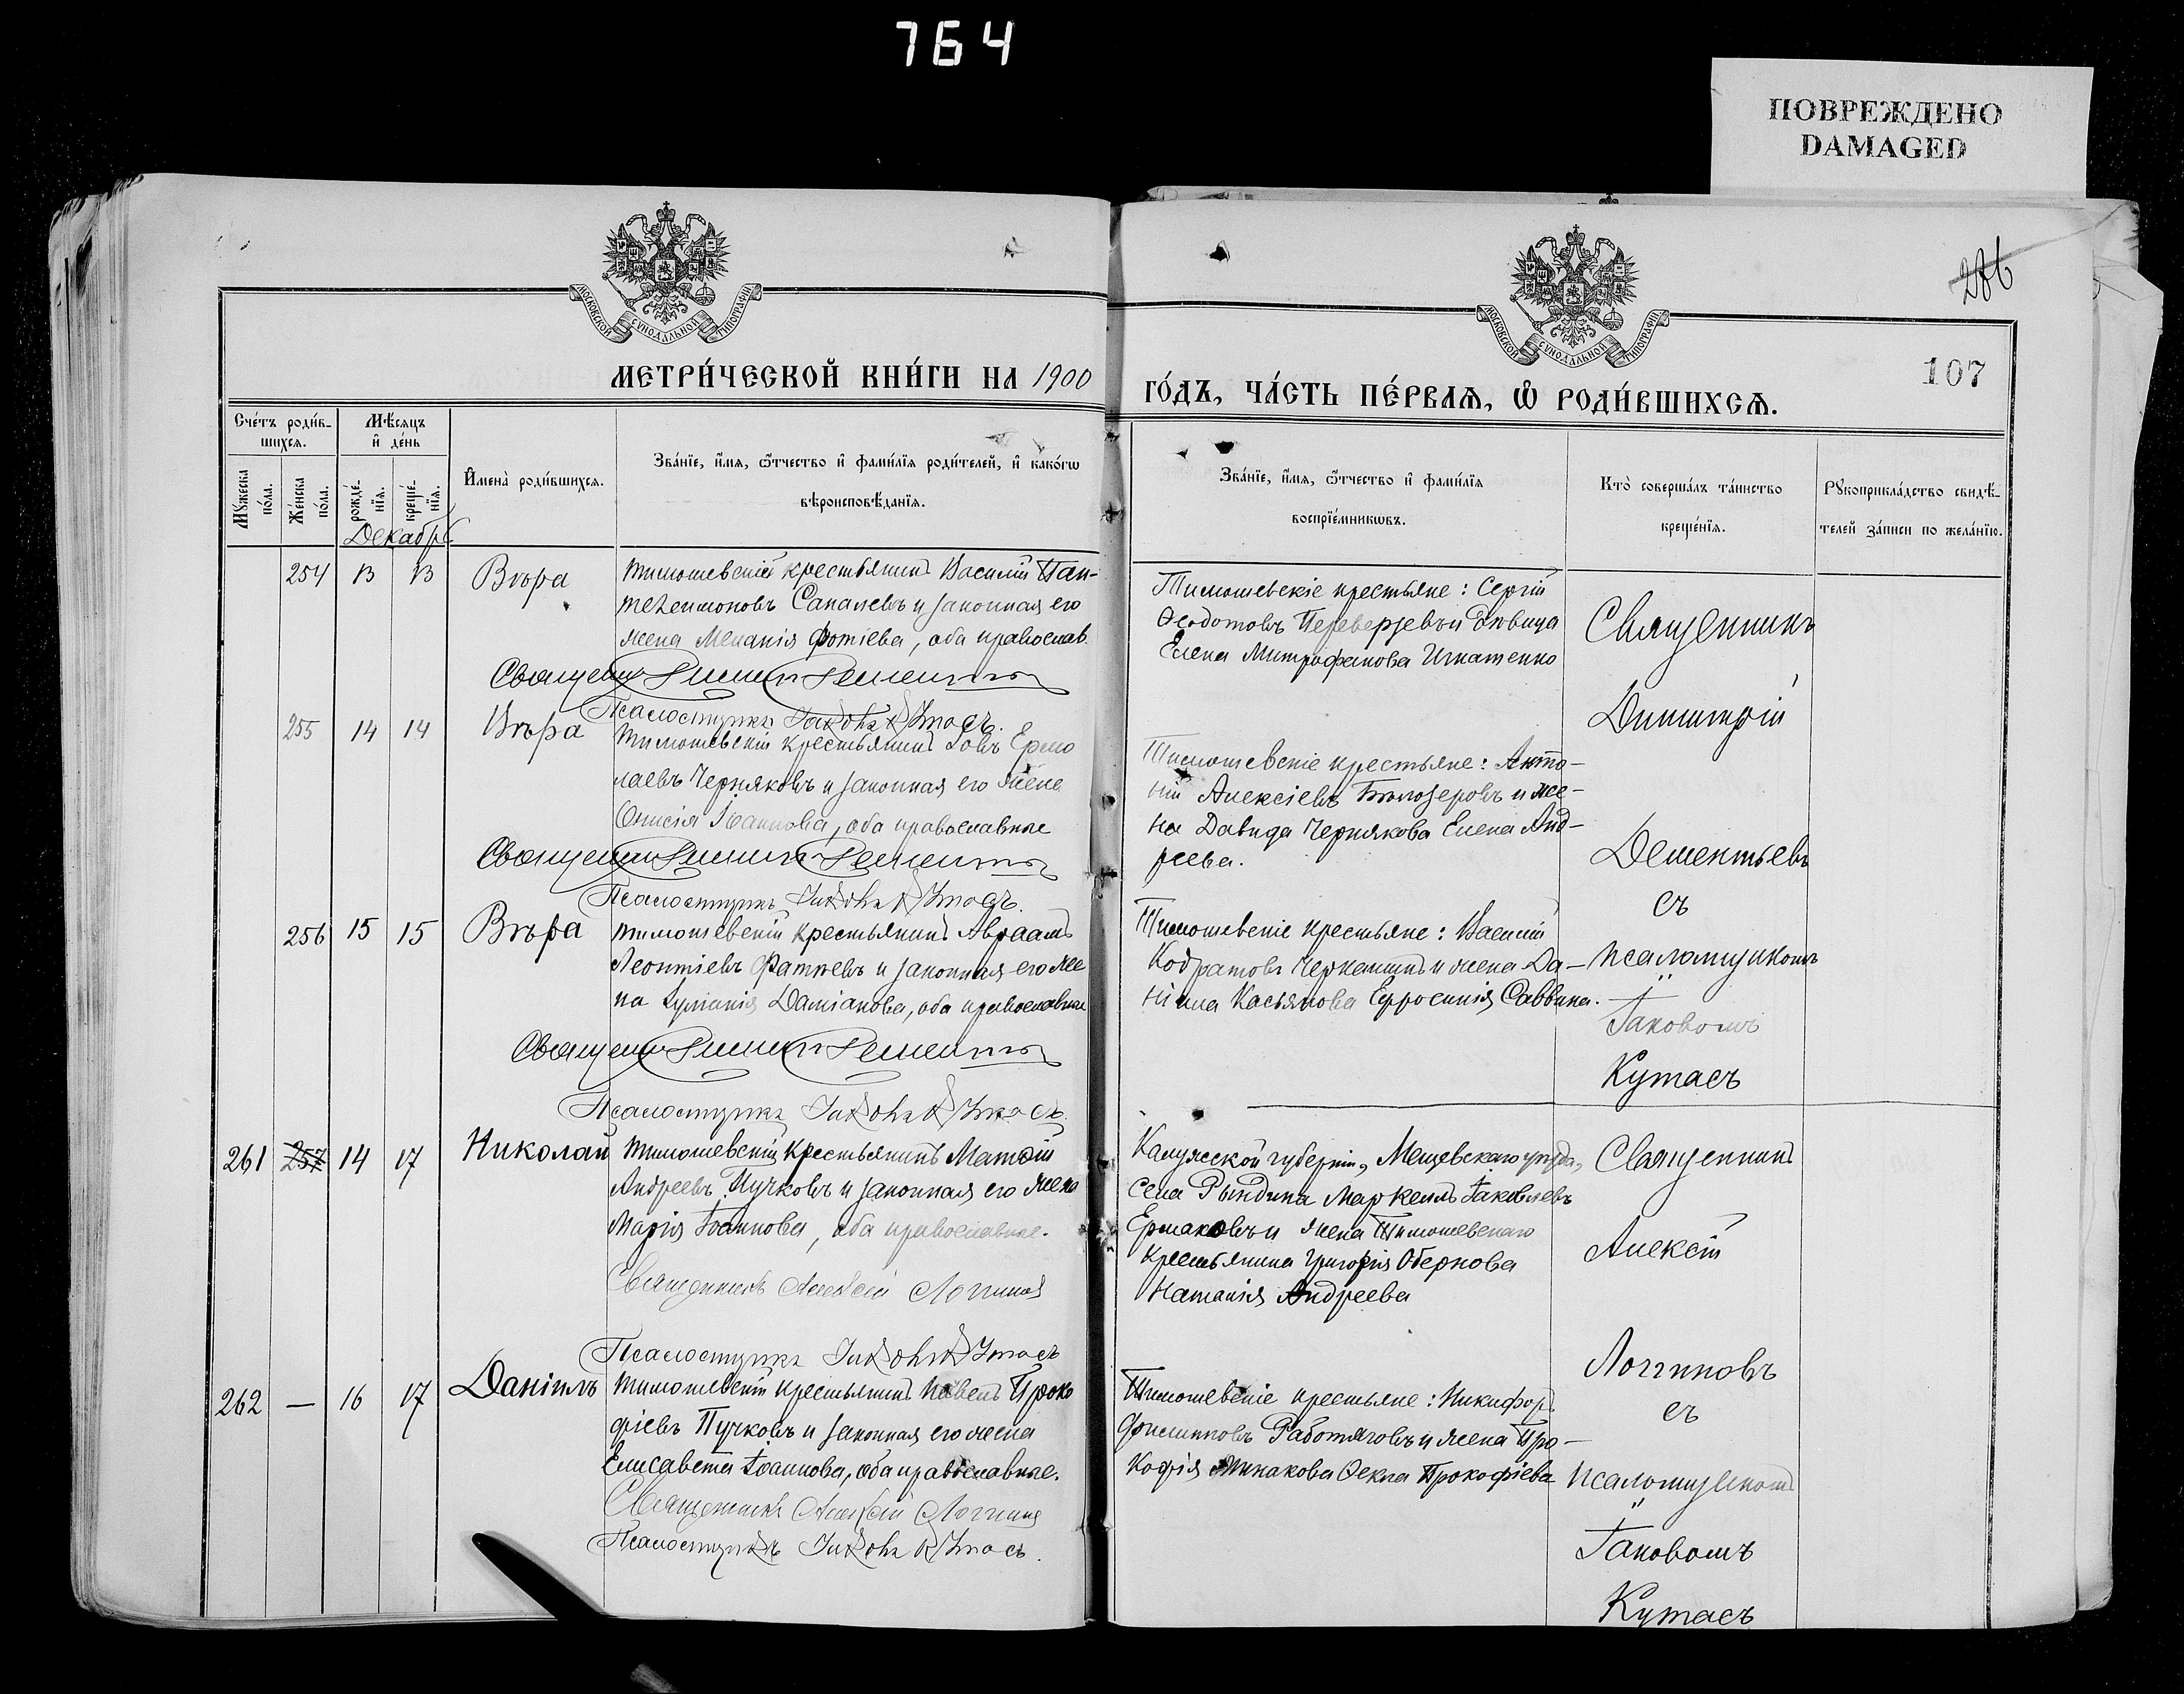 764
ПОВРЕЖДЕНО
DAMAGED
МОСКОВСКОЙ СѴНОДАЛЬНОЙ ТИПОГРАФІИ
МОСКОВСКОЙ СѴНОДАЛЬНОЙ ТИПОГРАФІИ
286
107
МЕТРИ́ЧЕСКОЙ КНИ́ГИ НА 1900
ГО́ДЪ, ЧА́СТЬ ПЕ́РВАѦ, Ѡ РОДИ́ВШИХСѦ.
Сче́тъ роди́в-
шихсѧ.
Мѣ́сѧцъ
и҆ де́нь
Мꙋ́жеска
по́ла.
Же́нска
по́ла.
рожде́-
нїѧ.
креще́-
нїѧ.
И҆мена̀ роди́вшихсѧ.
Зва́нїе, и҆́мѧ, ѻ҆́тчество и҆ фами́лїѧ роди́телей, и҆ како́гѡ
вѣроисповѣ́данїѧ.
Зва́нїе, и҆́мѧ, ѻ҆́тчество и҆ фами́лїѧ
воспрїе́мникѡвъ.
Кто̀ соверша́лъ та́инство
креще́нїѧ.
Рꙋкоприкла́дство свидѣ́-
телей за́писи по жела́нїю.
Декабрь
254 13 13 Вѣра
Тимошевскій крестьянинъ Василій Пан-
телеимоновъ Сапалевъ и законная его
жена Меланія Фотіева, оба православ.
Священн
Псаломщикъ Іаковъ Кутасъ.
Тимошевскіе крестьяне: Сергій
Ѳеодотовъ Переверзевъ и дѣвица
Елена Митрофанова Игнатенко
Священникъ
Димитрій
Дементьевъ
съ
псаломщикомъ
Іаковомъ
Кутасъ
255 14 14 Вѣра
Тимошевскій крестьянинъ Іовъ Ермо
лаевъ Черняковъ и законная его жена
Онисія Іоаннова, оба православные
Священн
Псаломщикъ Іаковъ Кутасъ.
Тимошевскіе крестьяне: Анто-
ній Алексіевъ Бѣлозеровъ и же-
на Давида Чернякова Елена Анд-
реева.
256 15 15 Вѣра
Тимошевскій крестьянинъ Авраамъ
Леонтіевъ Фатѣевъ и законная его же
на Іуліанія Даміанова, оба православные
Священн
Псаломщикъ Іаковъ Кутасъ.
Тимошевскіе крестьяне: Василій
Кодратовъ и жена Да-
ніила Касьянова Евфросинія Саввина.
261 257 14 17 Николай
Тимошевскій крестьянинъ Матѳій
Андреевъ Пучковъ и законная его жена
Марія Іоаннова, оба православные.
Священникъ Алексій Логгиновъ
Псаломщикъ Іаковъ Кутасъ
Калужской губерніи, Мещевскаго уѣзда,
села Рындина Маркеллъ Іаковлевъ
Ермаковъ и жена Тимошевскаго
крестьянина Григорія Обернова
Наталія Андреева
Священникъ
Алексій
Логгиновъ
съ
псаломщикомъ
Іаковомъ
Кутасъ
262 — 16 17 Даніилъ
Тимошевскій крестьянинъ Павелъ Проко
фіевъ Пучковъ и законная его жена
Елисавета Іоаннова, оба православные.
Священникъ Алексій Логгиновъ
Псаломщикъ Іаковъ Кутасъ.
Тимошевскіе крестьяне: Никифоръ
Филипповъ Работяговъ и жена Про-
кофія Минакова Ѳекла Прокофіева